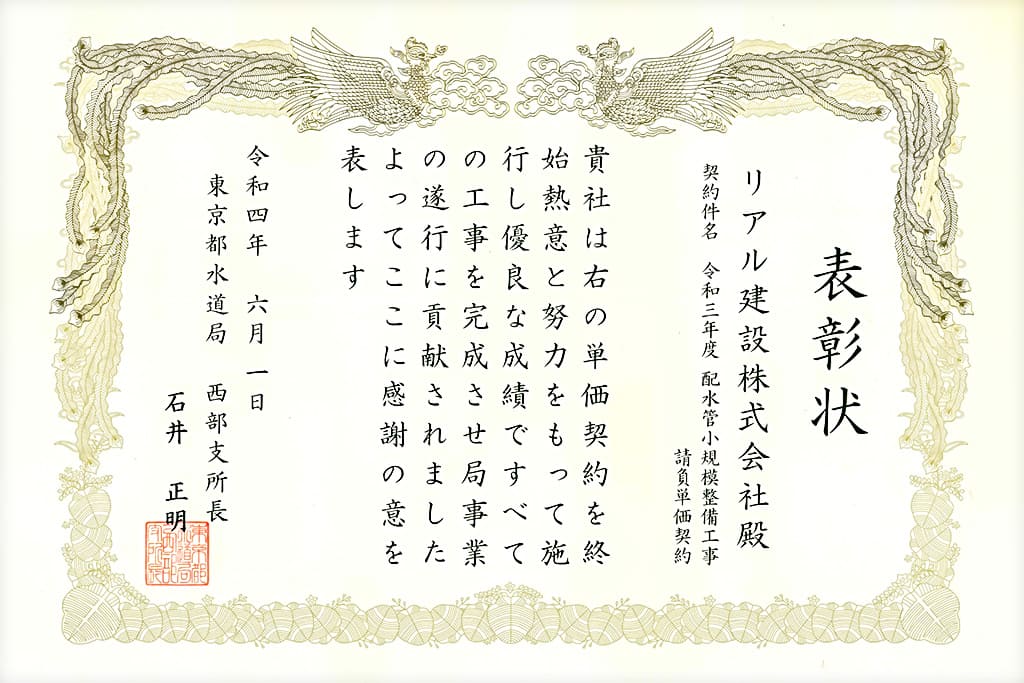 表彰状
リアル建設株式会社殿
契約件名　令和三年度　配水管小規模整備工事
請負単価契約
貴社は右の単価契約を終
始熱意と努力をもって施
行し優良な成績ですべて
の工事を完成させ局事業
の遂行に貢献されました
よってここに感謝の意を
表します
令和四年　六月　一日
東京都水道局　西部支所長
石井　正明